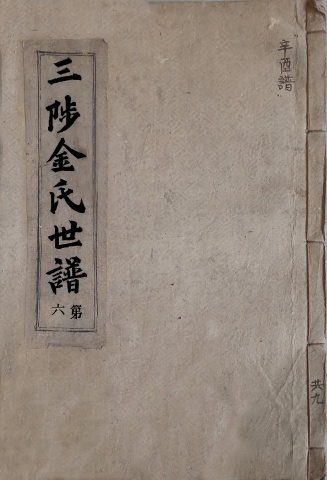 辛酉譜
共九
三陟金氏世譜
第六